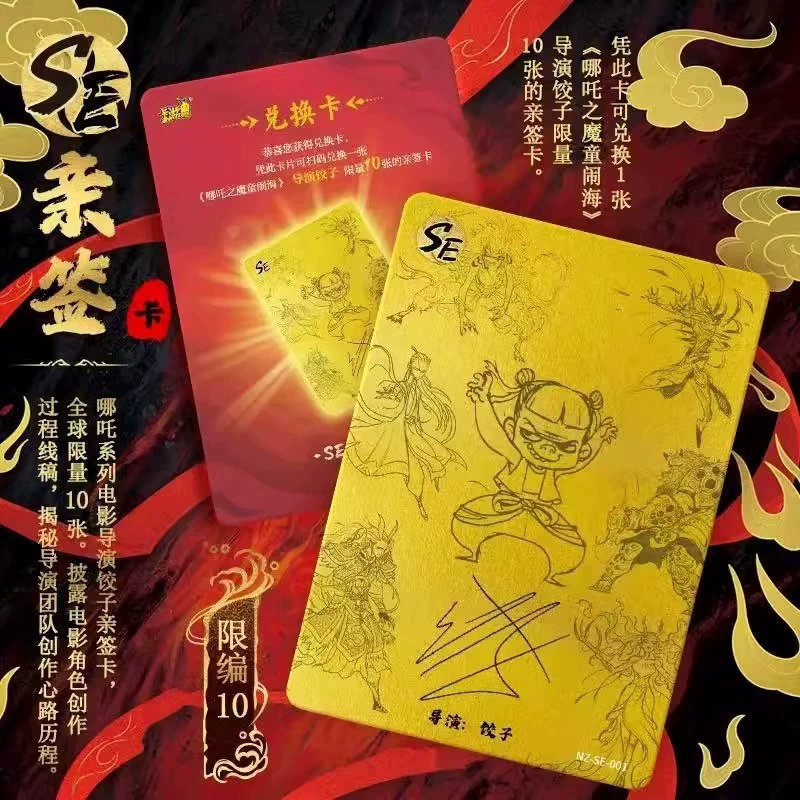 SE
亲签
卡
哪吒系列电影导演饺子亲签卡，
全球限量10张。披露电影角色创作
过程线稿，揭秘导演团队创作心路历程。
限编10
卡游
兑换卡
恭喜您获得兑换卡，
凭此卡片可扫码兑换一张
《哪吒之魔童闹海》 导演饺子 限量10张的亲签卡
SE
·SE
凭此卡可兑换1张
《哪吒之魔童闹海》
导演饺子限量
10张的亲签卡。
SE
导演：饺子
NZ-SE-001